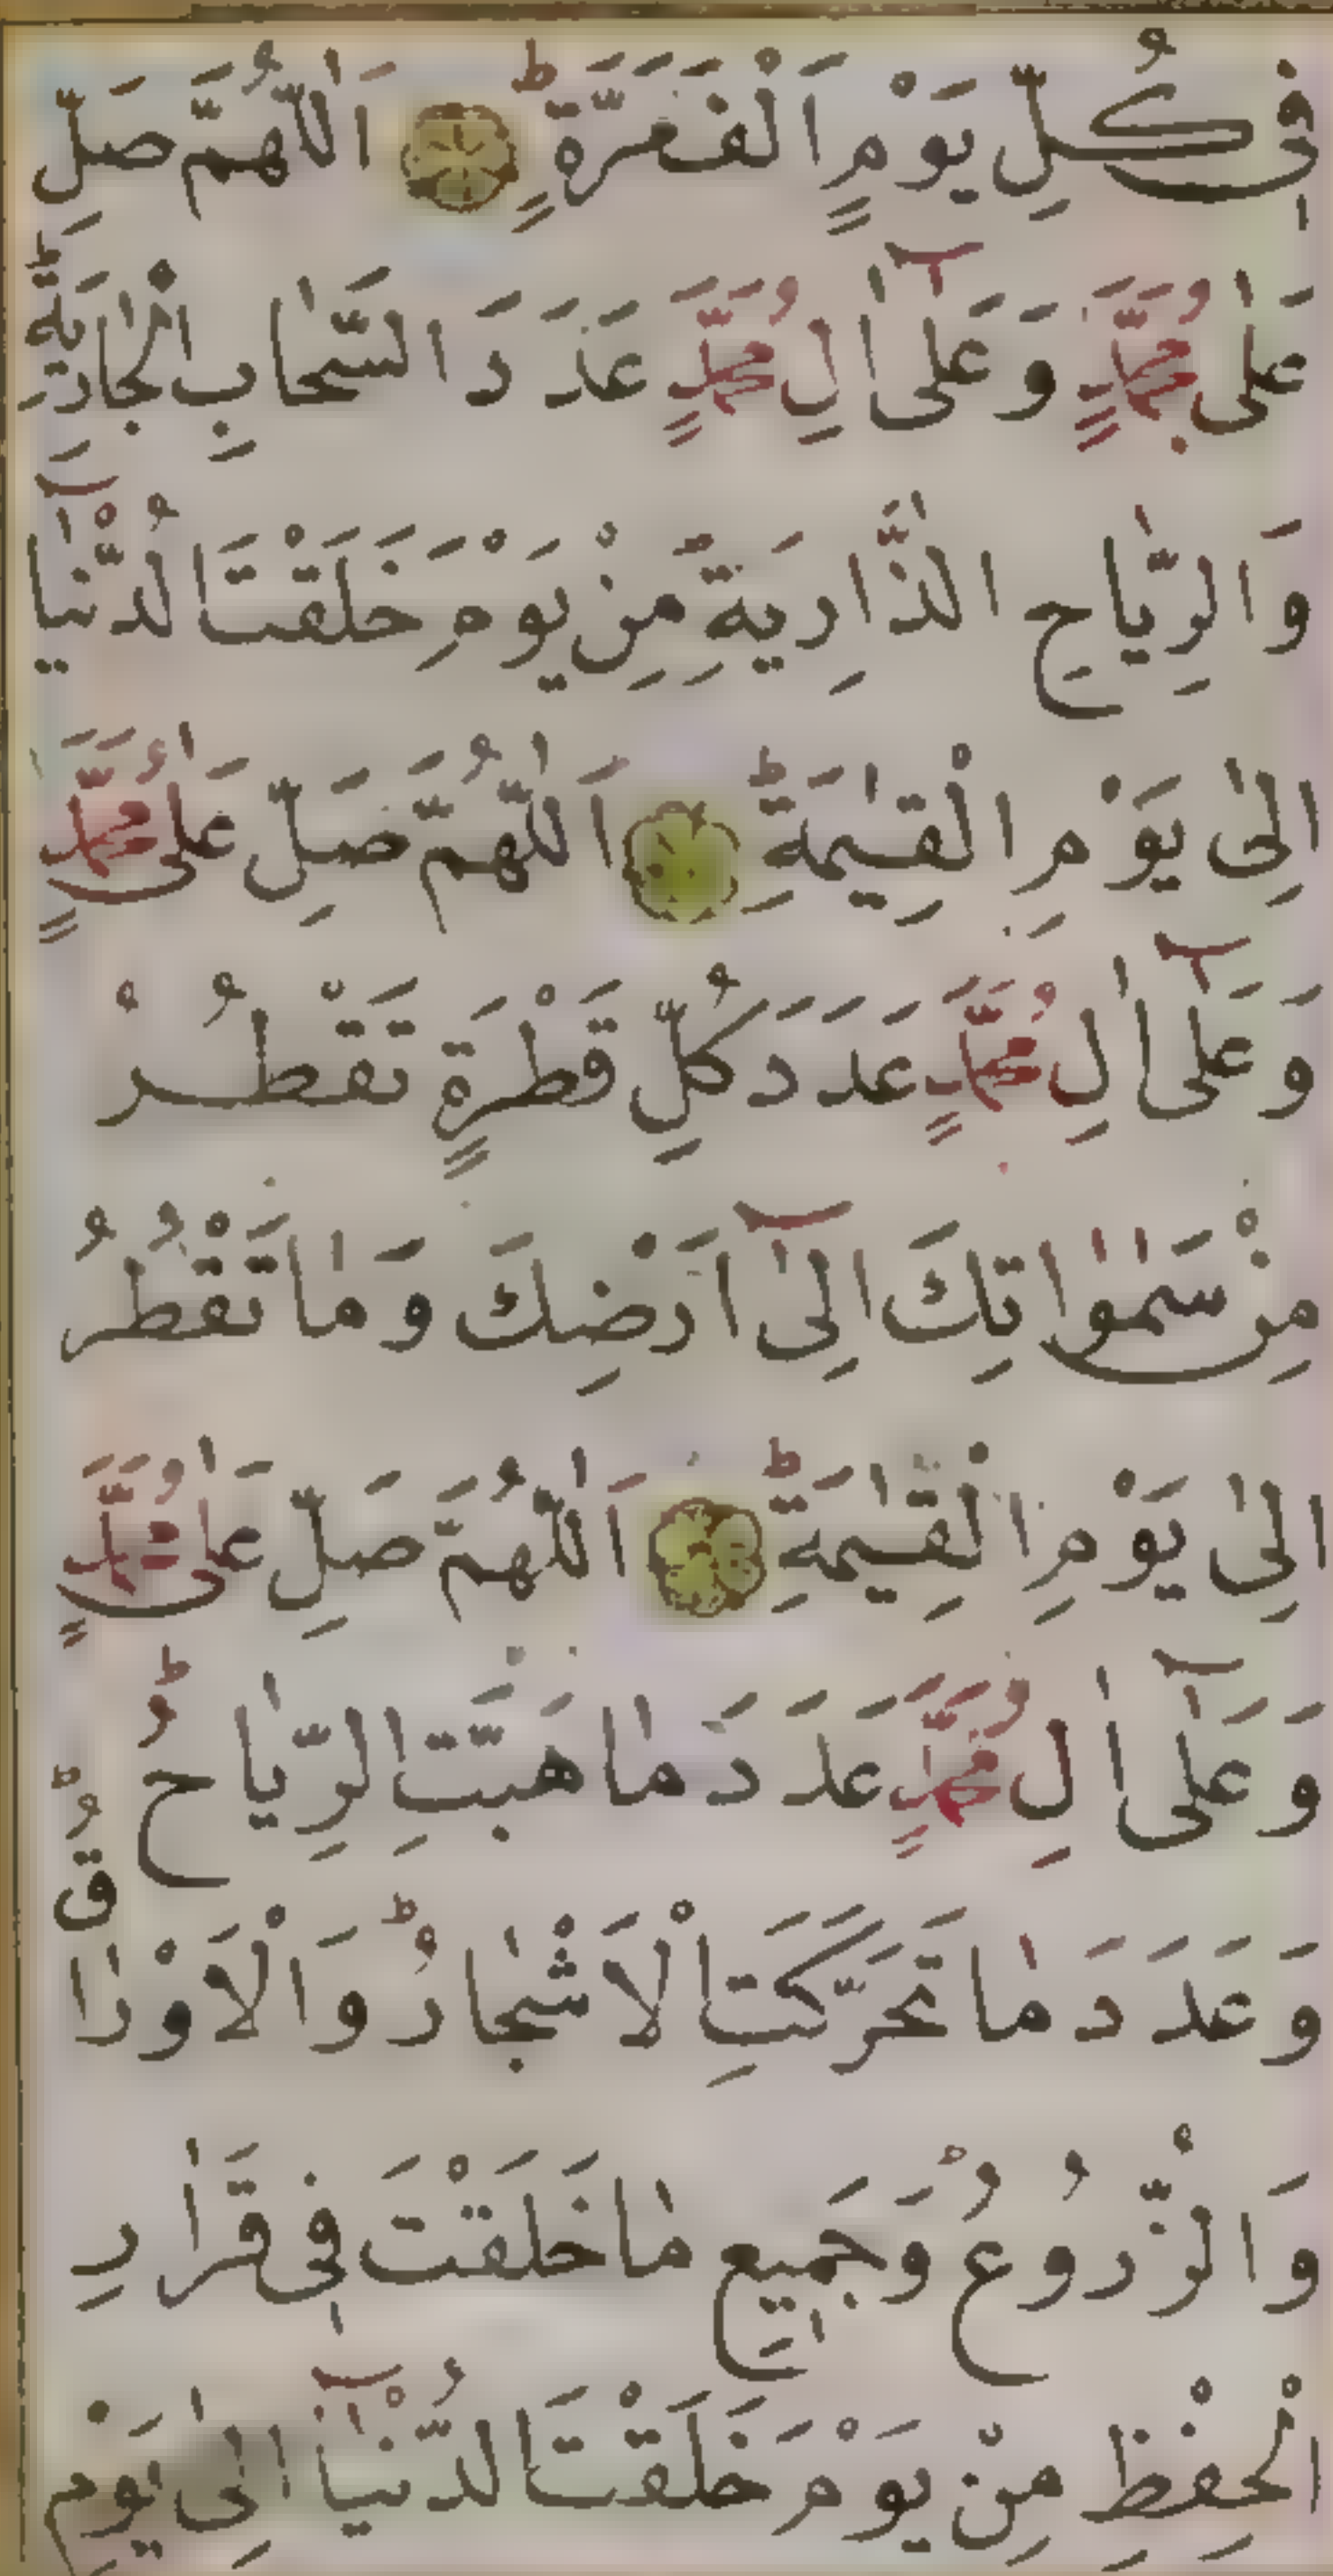 فِي كُلِّ يَوْمٍ اَلْفَ مَرَّةٍ ؕ اَللّٰهُمَّ صَلِّ
عَلٰى مُحَمَّدٍ وَعَلٰٓى اٰلِ مُحَمَّدٍ عَدَدَ السَّحَابِ الْجَارِيَةِ ؕ
وَالرِّيَاحِ الذَّارِيَةِ مِنْ يَوْمِ خَلَقْتَ الدُّنْيَآ
اِلٰى يَوْمِ الْقِيٰمَةِ ؕ اَللّٰهُمَّ صَلِّ عَلٰى مُحَمَّدٍ
وَعَلٰٓى اٰلِ مُحَمَّدٍ عَدَدَ كُلِّ قَطْرَةٍ تَقْطُرُ
مِنْ سَمٰوٰاتِكَ اِلٰٓى اَرْضِكَ وَمَا تَقْطُرُ
اِلٰى يَوْمِ الْقِيٰمَةِ ؕ اَللّٰهُمَّ صَلِّ عَلٰى مُحَمَّدٍ
وَعَلٰٓى اٰلِ مُحَمَّدٍ عَدَدَ مَا هَبَّتِ الرِّيَاحُ ؕ
وَعَدَدَ مَا تَحَرَّكَتِ الْاَشْجَارُ ؕ وَالْاَوْرَاقُ ؕ
وَالزُّرُوْعُ ؕ وَجَمِيْعِ مَا خَلَقْتَ فِي قَرَارِ
الْحِفْظِ مِنْ يَوْمَ خَلَقْتَ الدُّنْيَآ اِلٰى يَوْمِ